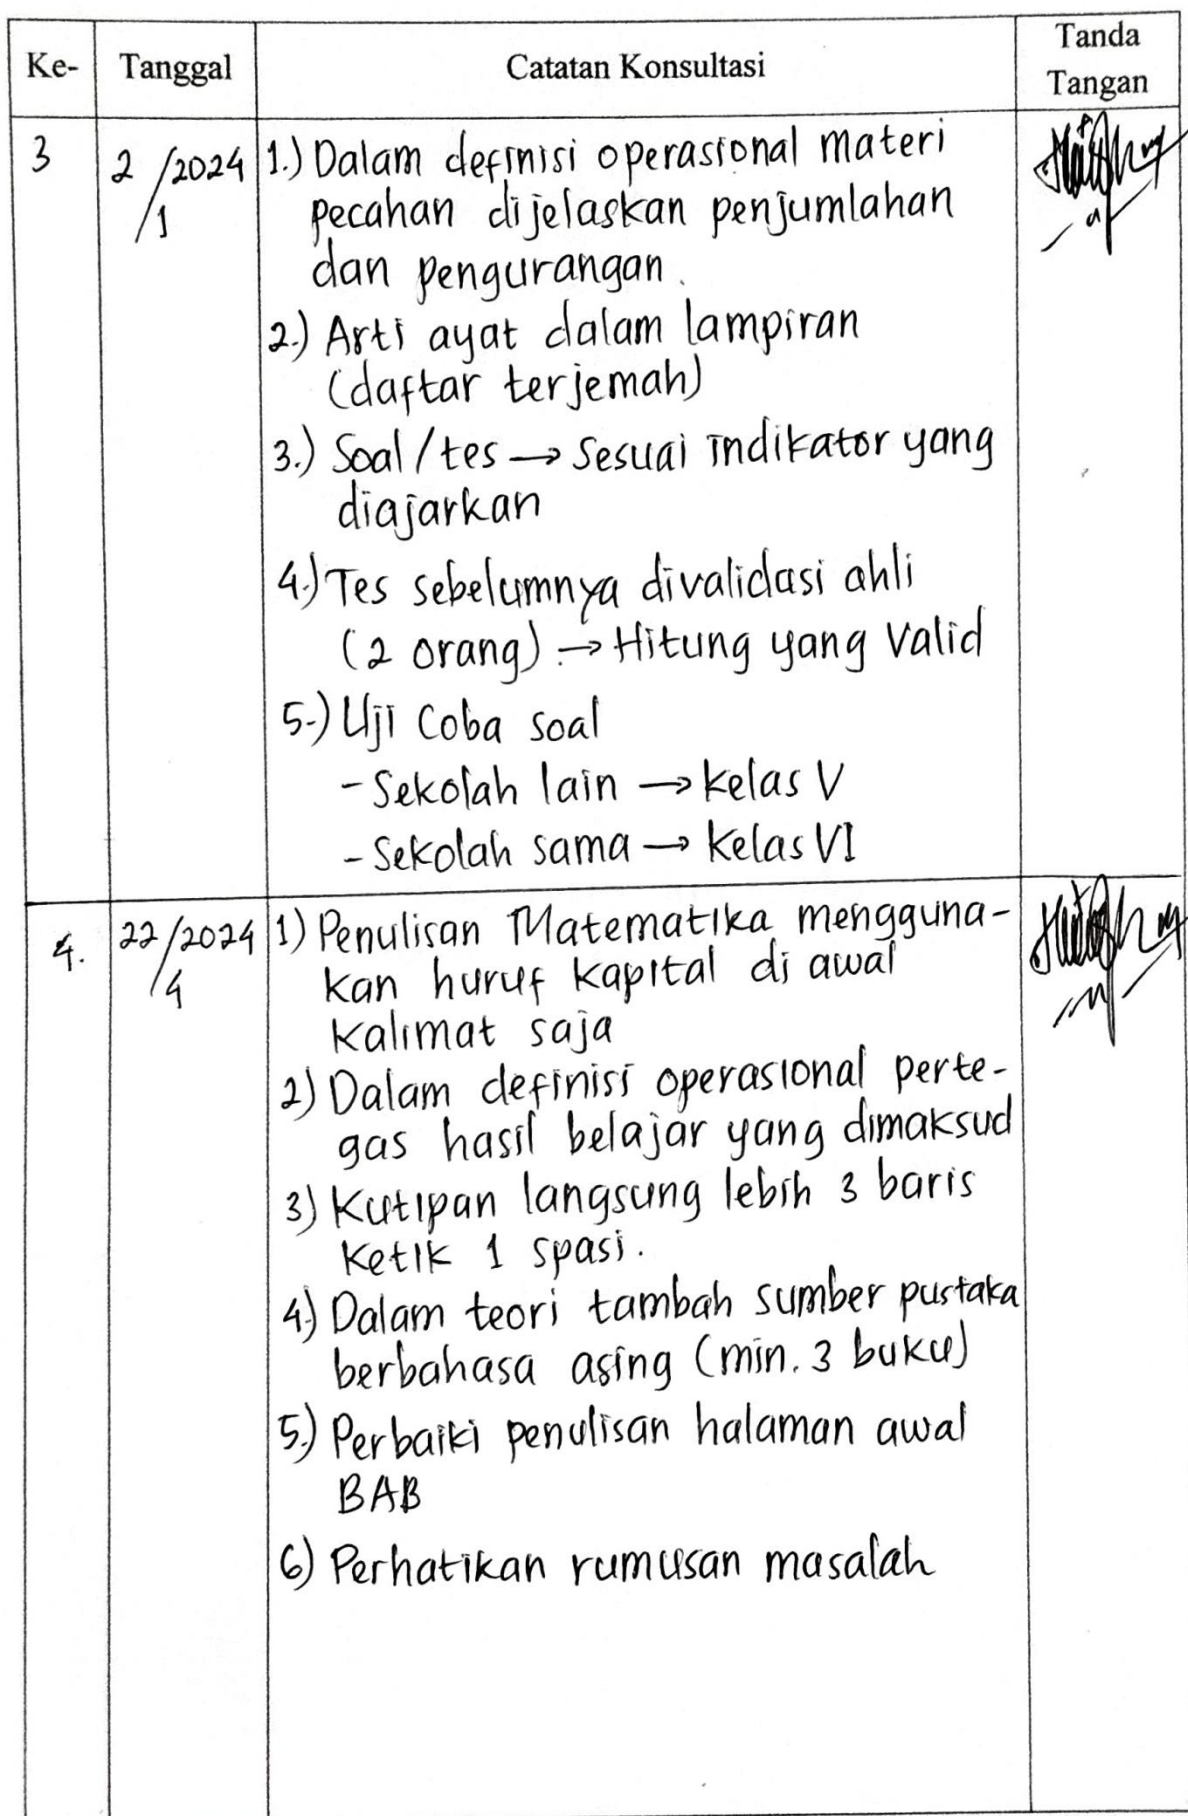 Ke- Tanggal Catatan Konsultasi Tanda
Tangan
3 2/1 2024 1.) Dalam definisi operasional materi
pecahan dijelaskan penjumlahan
dan pengurangan.
2.) Arti ayat dalam lampiran
(daftar terjemah)
3.) Soal/tes → Sesuai indikator yang
diajarkan
4.) Tes sebelumnya divalidasi ahli
(2 orang) → Hitung yang Valid
5.) Uji Coba soal
- Sekolah lain → kelas V
- Sekolah sama → kelas VI
4. 22/4 2024 1) Penulisan Matematika mengguna-
kan huruf kapital di awal
kalimat saja
2) Dalam definisi operasional perte-
gas hasil belajar yang dimaksud
3) Kutipan langsung lebih 3 baris
Ketik 1 spasi.
4) Dalam teori tambah sumber pustaka
berbahasa asing (min. 3 buku)
5.) Perbaiki penulisan halaman awal
BAB
6) Perhatikan rumusan masalah